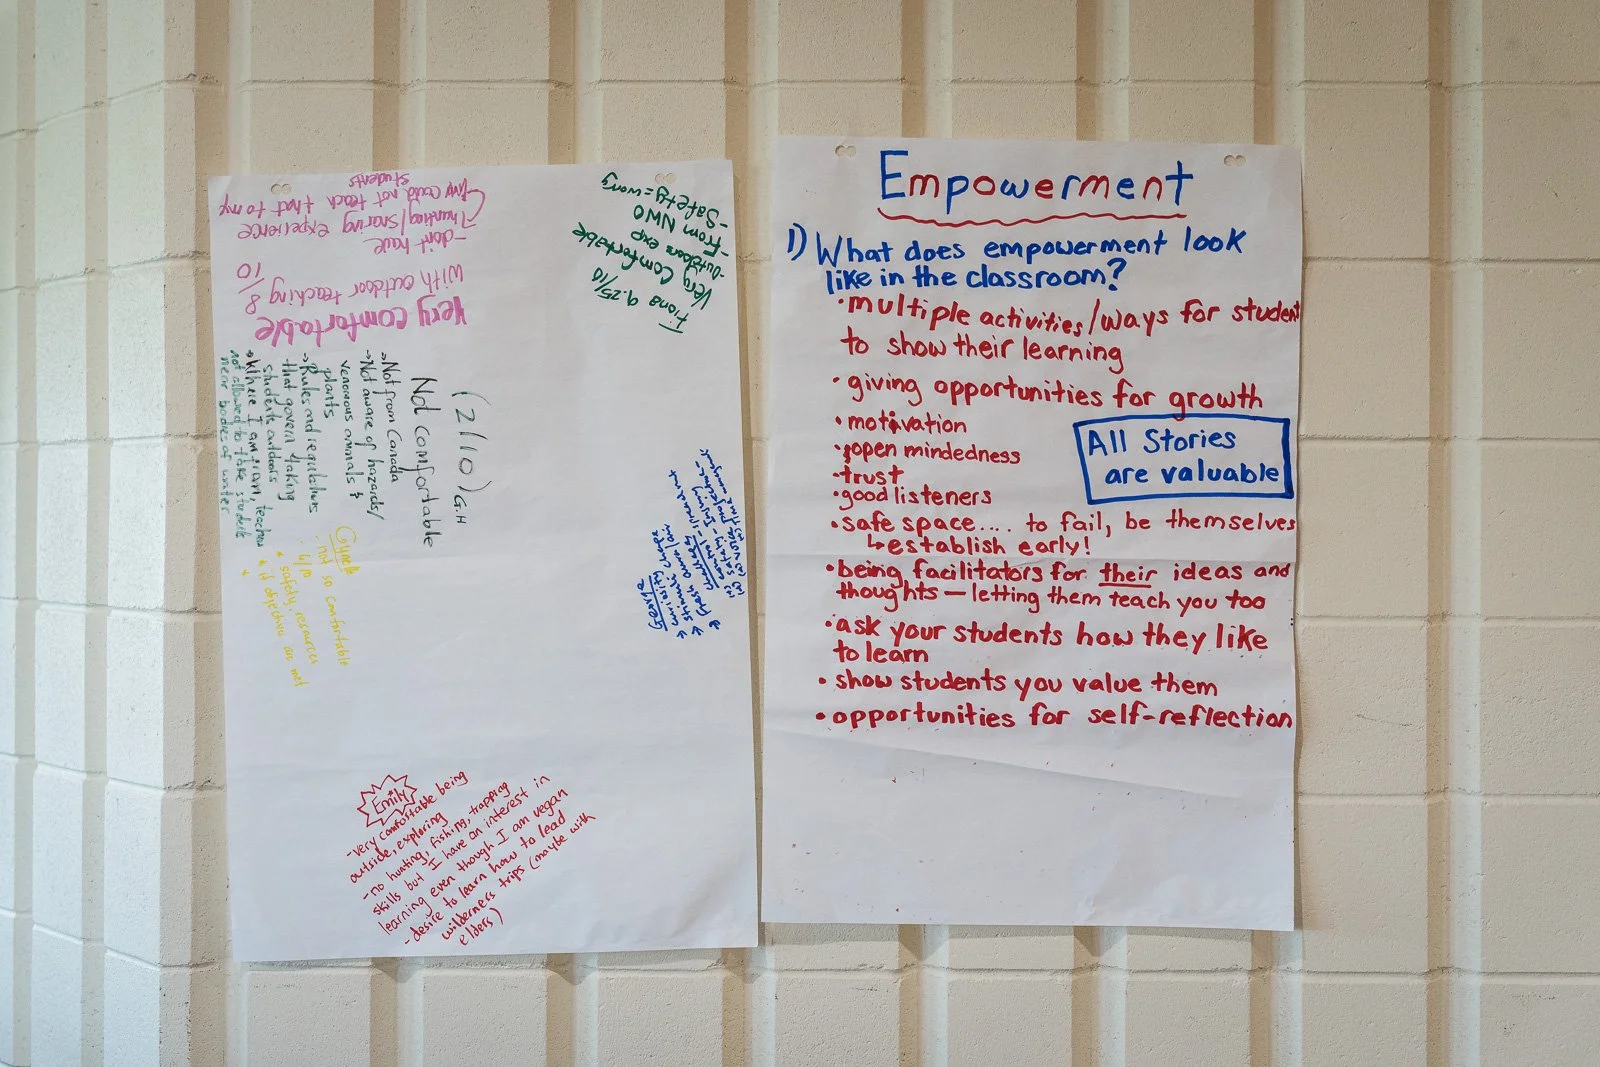 very comfortable
with outdoor teaching 8/10
-don't have
hunting/sharing experience
could not teach that to my
students
Fiona 9.25/10
Very Comfortable
-outdoors exp
from NWO
-Safety=worry
(2/10) G.H
Not comfortable
→Not from Canada
→Not aware of hazards/
venomous animals &
plants
→Rules and regulations
that govern taking
students outdoors
→Where I am from, teachers
not allowed to take students
near bodies of water
- not so comfortable
safety, resources
George
Emily
-very comfortable being
outside, exploring
-no hunting, fishing, trapping
skills but I have an interest in
learning even though I am vegan
-desire to learn how to lead
wilderness trips (maybe with
elders)
Empowerment
1) What does empowerment look
like in the classroom?
•multiple activities/ways for student
to show their learning
•giving opportunities for growth
•motivation
•open mindedness
•trust
•good listeners
All Stories
are valuable
•safe space.... to fail, be themselves
↳establish early!
•being facilitators for their ideas and
thoughts — letting them teach you too
•ask your students how they like
to learn
•show students you value them
•opportunities for self-reflection